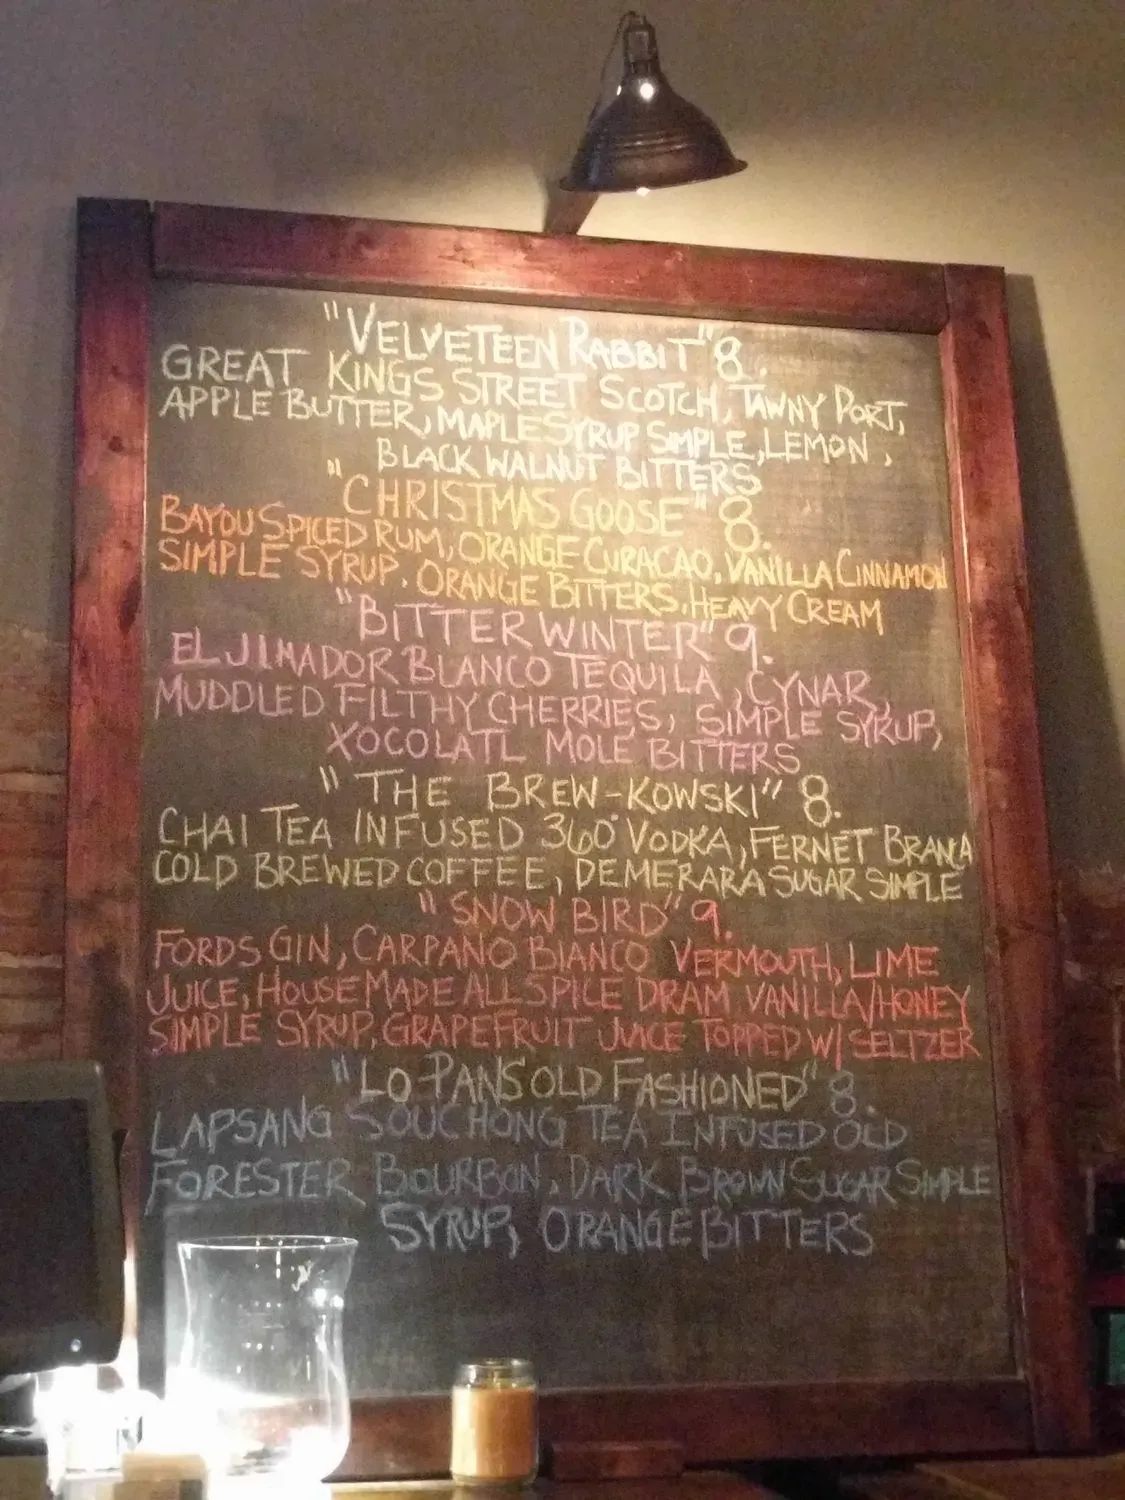 "VELVETEEN RABBIT" 8.
GREAT KINGS STREET SCOTCH, TAWNY PORT,
APPLE BUTTER, MAPLE SYRUP SIMPLE, LEMON,
BLACK WALNUT BITTERS
"CHRISTMAS GOOSE" 8.
BAYOU SPICED RUM, ORANGE CURACAO, VANILLA CINNAMON
SIMPLE SYRUP, ORANGE BITTERS, HEAVY CREAM
"BITTER WINTER" 9.
EL JIMADOR BLANCO TEQUILA, CYNAR,
MUDDLED FILTHY CHERRIES, SIMPLE SYRUP,
XOCOLATL MOLE BITTERS
"THE BREW-KOWSKI" 8.
CHAI TEA INFUSED 360° VODKA, FERNET BRANCA
COLD BREWED COFFEE, DEMERARA SUGAR SIMPLE
"SNOW BIRD" 9.
FORDS GIN, CARPANO BIANCO VERMOUTH, LIME
JUICE, HOUSE MADE ALLSPICE DRAM VANILLA/HONEY
SIMPLE SYRUP, GRAPEFRUIT JUICE TOPPED W/ SELTZER
"LO-PANS OLD FASHIONED" 8.
LAPSANG SOUCHONG TEA INFUSED OLD
FORESTER BOURBON, DARK BROWN SUGAR SIMPLE
SYRUP, ORANGE BITTERS